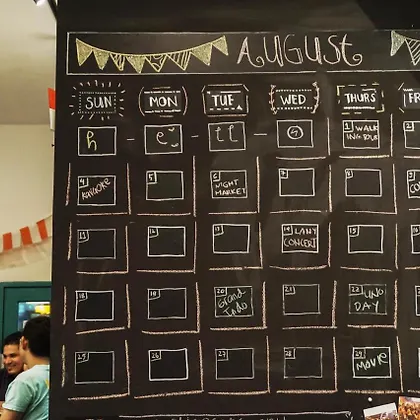 AUGUST
SUN MON TUE WED THURS FR
1 WALK 2
4 KARAOKE 5 6 NIGHT MARKET 7 8 9
11 12 13 14 LANY CONCERT 15 16
18 19 20 Grand 21 22 UNO DAY
25 26 27 28 29 MOVIE